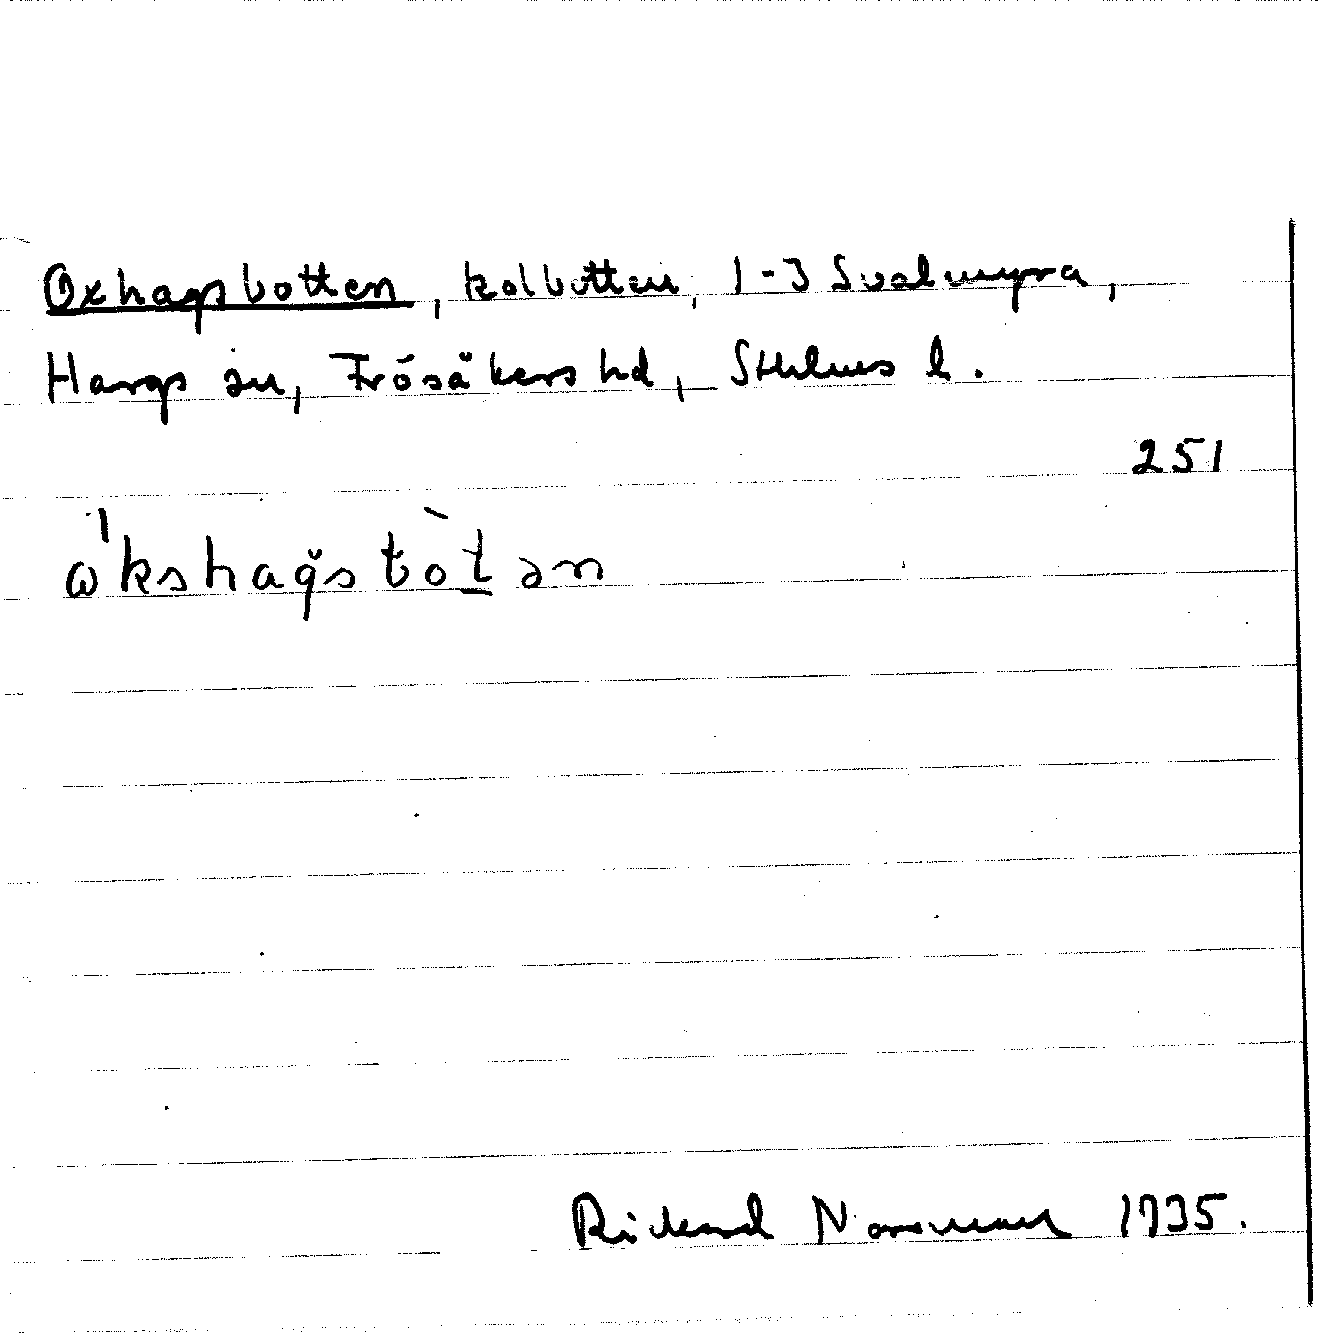 Oxhagsbotten, kolbotten, 1-3 Svalmyra,
Hargs sn, Frösåkers hd, Sthlms l.
251
ω'kshaǧsbòt̲ən
Rickard Norrman 1935.